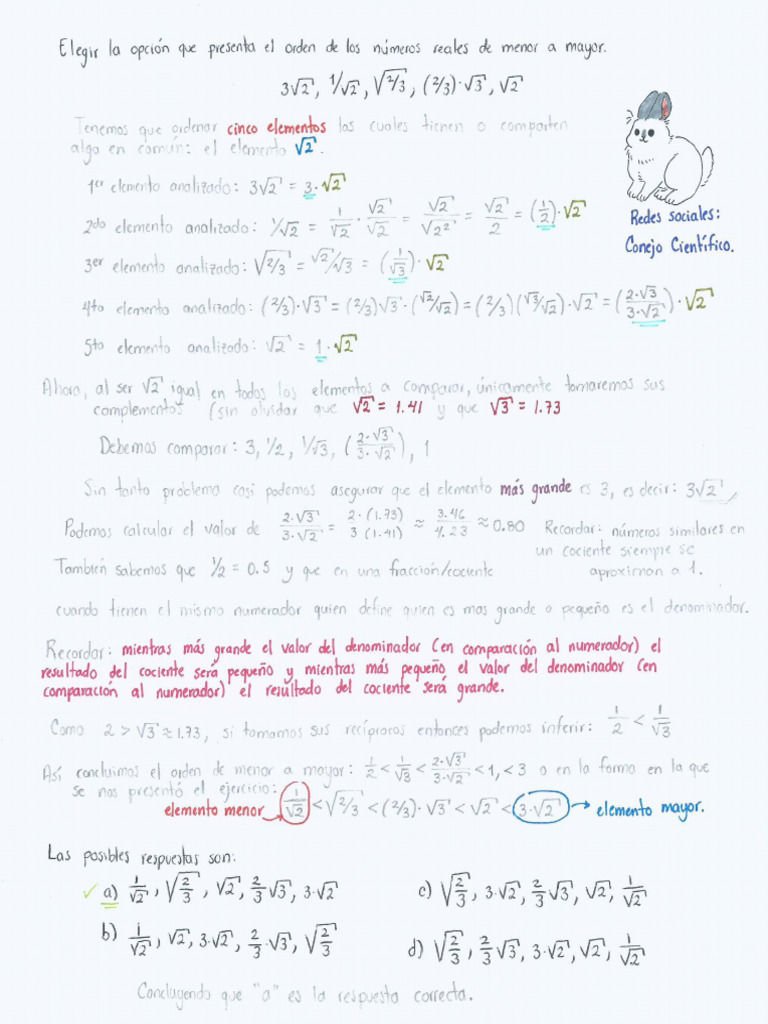 Elegir la opción que presenta el orden de los números reales de menor a mayor.
3√2, 1/√2, √(2/3), (2/3)·√3, √2
Tenemos que ordenar cinco elementos los cuales tienen o comparten
algo en común: el elemento √2.
1er elemento analizado: 3√2 = 3·√2
2do elemento analizado: 1/√2 = 1/√2 · √2/√2 = √2/√2² = √2/2 = (1/2)·√2
3er elemento analizado: √(2/3) = √2/√3 = (1/√3)·√2
4to elemento analizado: (2/3)·√3 = (2/3)√3·(√2/√2) = (2/3)(√3/√2)·√2 = (2·√3/3·√2)·√2
5to elemento analizado: √2 = 1·√2
Redes sociales:
Conejo Científico.
Ahora, al ser √2 igual en todos los elementos a comparar, únicamente tomaremos sus
complementos (sin olvidar que √2 = 1.41 y que √3 = 1.73
Debemos comparar: 3, 1/2, 1/√3, (2·√3/3·√2), 1
Sin tanto problema casi podemos asegurar que el elemento más grande es 3, es decir: 3√2,
Podemos calcular el valor de 2·√3/3·√2 = 2·(1.73)/3(1.41) ≈ 3.46/4.23 ≈ 0.80
Recordar: números similares en
un cociente siempre se
aproximan a 1.
También sabemos que 1/2 = 0.5 y que en una fracción/cociente
cuando tienen el mismo numerador quien define quien es mas grande o pequeño es el denominador.
Recordar: mientras más grande el valor del denominador (en comparación al numerador) el
resultado del cociente será pequeño y mientras más pequeño el valor del denominador (en
comparación al numerador) el resultado del cociente será grande.
Como 2 > √3 ≈ 1.73, si tomamos sus recíprocos entonces podemos inferir: 1/2 < 1/√3
Así concluimos el orden de menor a mayor: 1/2 < 1/√3 < 2·√3/3·√2 < 1, < 3 o en la forma en la que
se nos presentó el ejercicio:
elemento menor → 1/√2 < √(2/3) < (2/3)·√3 < √2 < 3·√2 → elemento mayor.
Las posibles respuestas son:
✓ a) 1/√2, √(2/3), √2, 2/3√3, 3·√2
b) 1/√2, √2, 3·√2, 2/3·√3, √(2/3)
c) √(2/3), 3·√2, 2/3√3, √2, 1/√2
d) √(2/3), 2/3√3, 3·√2, √2, 1/√2
Concluyendo que "a" es la respuesta correcta.